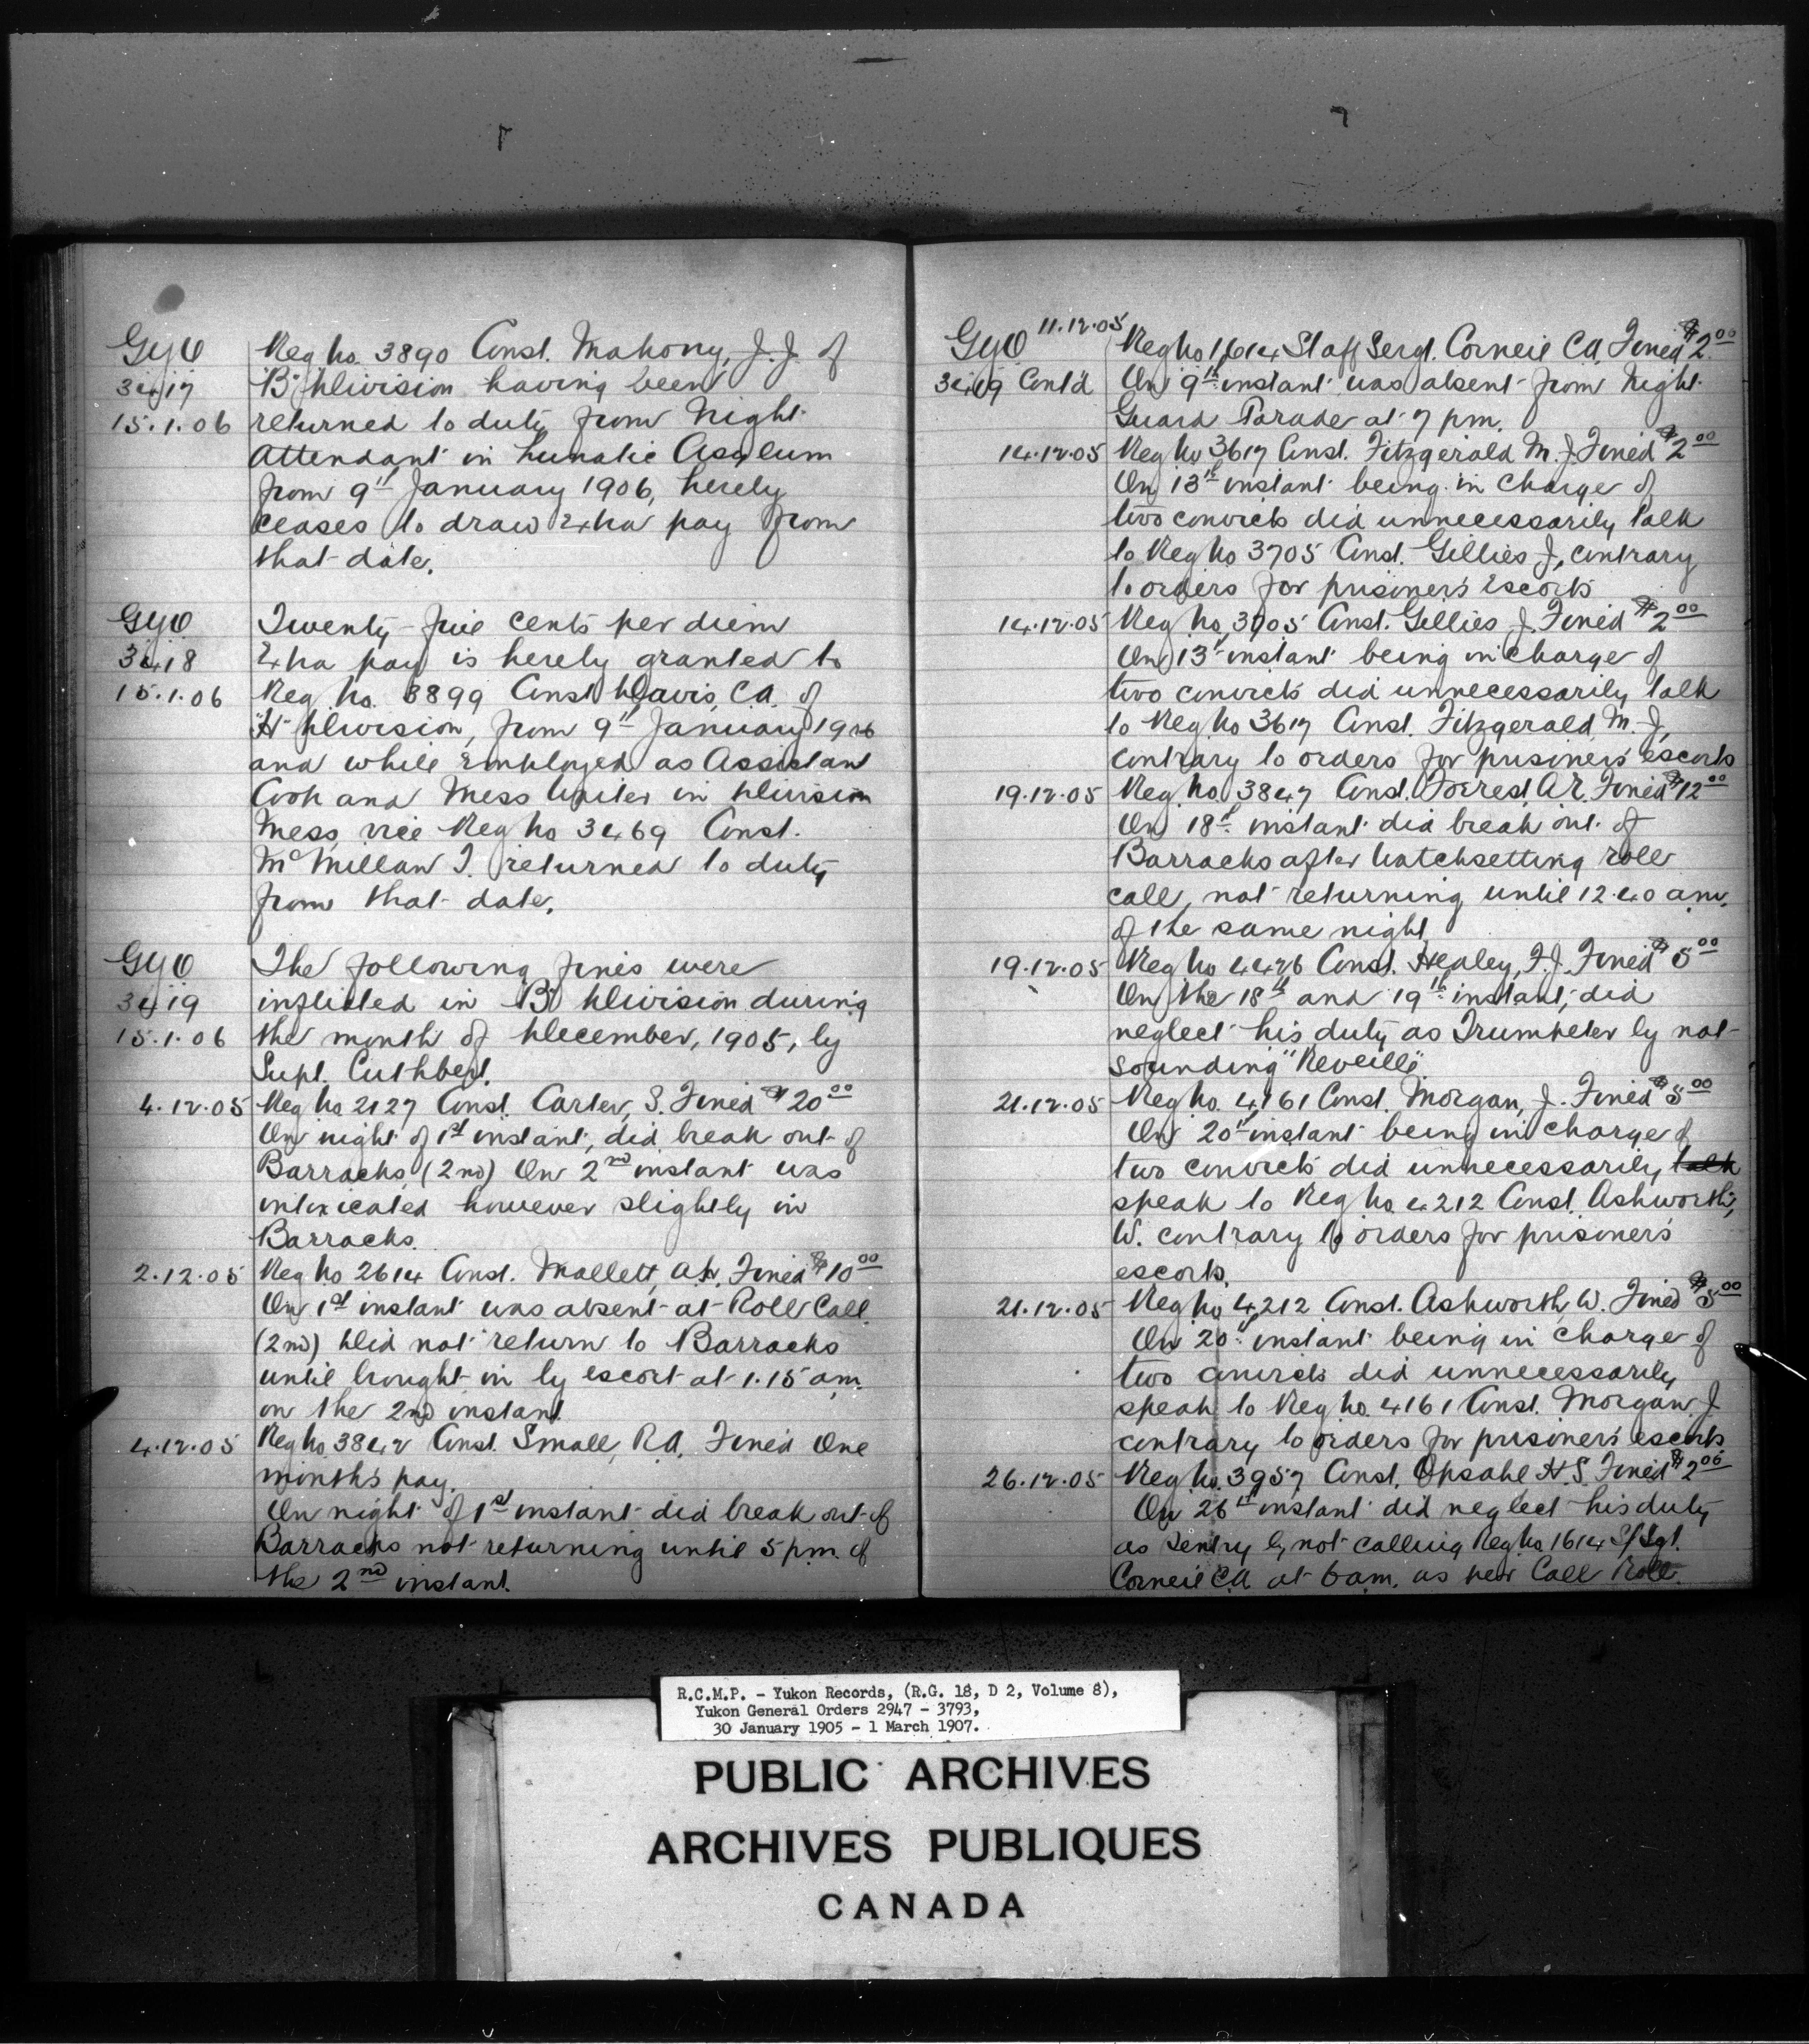 GYO
3417
15.1.06
Reg No. 3890 Const. Mahony, J.J. of
"B" Division having been
returned to duty from Night
Attendant in Lunatic Asylum
from 9th January 1906, hereby
ceases to draw Extra pay from
that date.
GYO
3418
15.1.06
Twenty-five cents per diem
Extra pay is hereby granted to
Reg. No. 3899 Const Davis, C.A. of
"H" Division, from 9th January 1906
and while Employed as Assistant
Cook and Mess Waiter in Division
Mess, vice Reg No 3469 Const.
McMillan T. returned to duty
from that date.
GYO
3419
15.1.06
The following fines were
inflicted in "B" Division during
the month of December, 1905, by
Supt. Cuthbert.
4.12.05 Reg No 2127 Const. Carter, S. Fined $20 00
On night of 1st instant, did break out of
Barracks, (2nd) On 2nd instant was
intoxicated however slightly in
Barracks.
2.12.05 Reg No 2614 Const. Mallett, Fined $10 00
On 1st instant was absent at Roll Call.
(2nd) Did not return to Barracks
until brought in by escort at 1.15 am.
on the 2nd instant.
4.12.05 Reg No 3842 Const. Small, R.A. Fined One
months pay.
On night of 1st instant did break out of
Barracks not returning until 5 p.m. of
the 2nd instant.
GYO
3419 Cont'd
11.12.05 Reg No 1614 Staff Sergt. Corneil C.A. Fined $2.00
On 9th instant was absent from Night
Guard Parade at 7 pm.
14.12.05 Reg No 3617 Const. Fitzgerald M.J. Fined $2 00
On 13th instant being in Charge of
two convicts did unnecessarily talk
to Reg No 3705 Const. Gillies J, contrary
to orders for prisoner's Escorts
14.12.05 Reg No 3705 Const. Gillies J. Fined $2 00
On 13th instant being in charge of
two convicts did unnecessarily talk
to Reg No 3617 Const. Fitzgerald M.J,
contrary to orders for prisoners' escorts
19.12.05 Reg. No. 3847 Const. Forrest, A.R. Fined $12 00
On 18th instant did break out of
Barracks after Watchsetting roll
call, not returning until 12.40 a.m.
of the same night
19.12.05 Reg No 4426 Const. Healey, F.J. Fined $5 00
On the 18th and 19th instant, did
neglect his duty as Trumpeter by not
sounding "Reveille".
21.12.05 Reg No. 4161 Const. Morgan, J. Fined $5 00
On 20th instant being in charge of
two convicts did unnecessarily talk
speak to Reg No 4212 Const. Ashworth,
W. contrary to orders for prisoner's
escorts.
21.12.05 Reg No 4212 Const. Ashworth, W. Fined $5 00
On 20th instant being in charge of
two convicts did unnecessarily
speak to Reg No. 4161 Const. Morgan J
contrary to orders for prisoner's escorts
26.12.05 Reg No. 3957 Const. Opsahl H.S. Fined $2 00
On 26th instant did neglect his duty
as Sentry by not calling Reg No. 1614 S/Sgt.
Corneil C.A. at 6 am. as per Call Roll.
R.C.M.P. - Yukon Records, (R.G. 18, D 2, Volume 8),
Yukon General Orders 2947 - 3793,
30 January 1905 - 1 March 1907.
PUBLIC ARCHIVES
ARCHIVES PUBLIQUES
CANADA